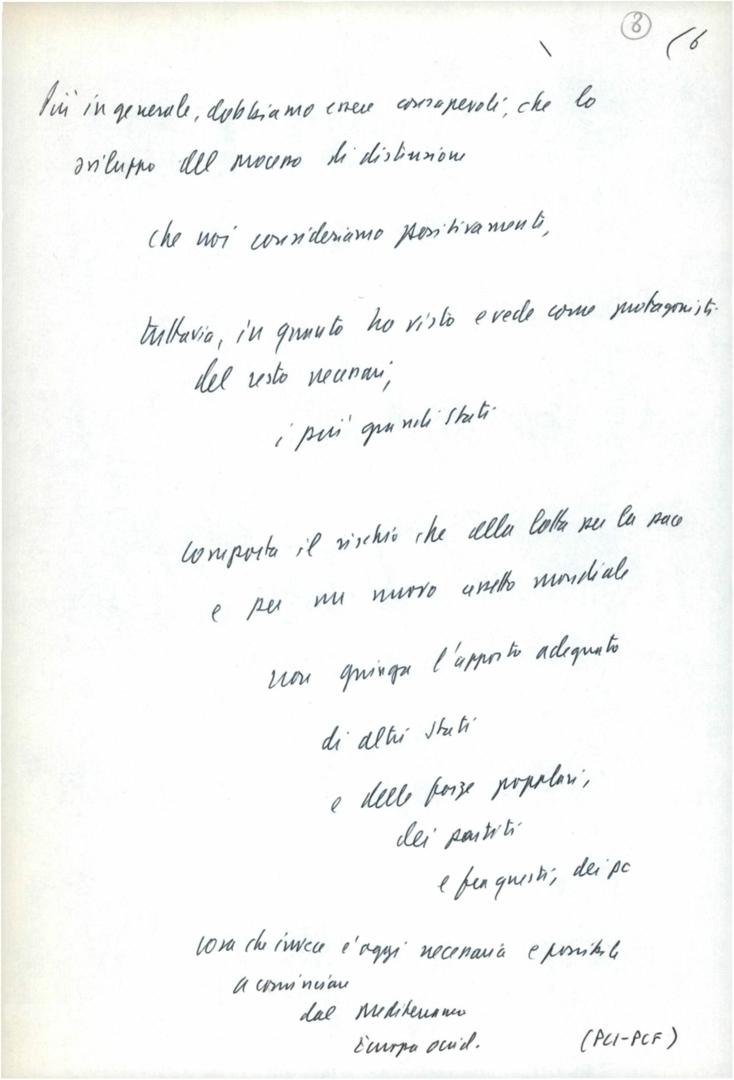 8 (6
Più in generale, dobbiamo essere consapevoli, che lo
sviluppo del processo di distensione
che noi consideriamo positivamente,
tuttavia, in quanto ha visto e vede come protagonisti
del resto necessari,
i più grandi stati
comporta il rischio che alla lotta per la pace
e per un nuovo assetto mondiale
non giunga l'apporto adeguato
di altri stati
e delle forze popolari,
dei partiti
e fra questi, dei pc
cosa che invece è oggi necessaria e possibile
a cominciare
dal Mediterraneo
Europa occid. (PCI-PCF)